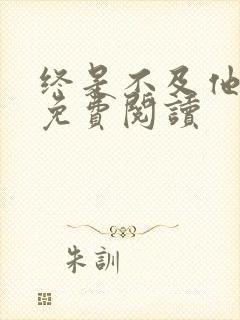 终是不及他
免費閱讀
朱訓